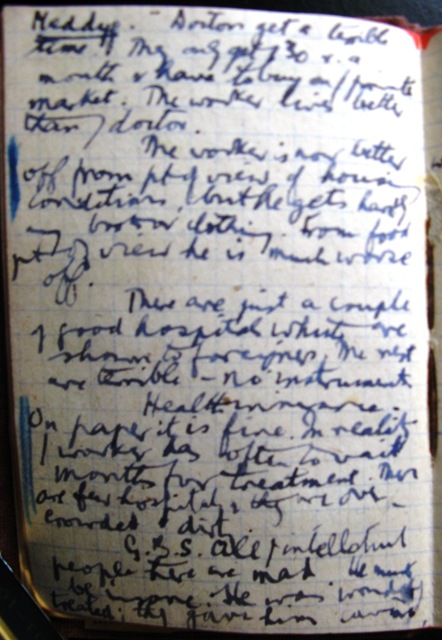 Haddye. - Doctors get a terrible
time. They only get 130 r. a
month & have to buy on private
market. The worker lives better
than doctor.
The worker is now better
off from pt of view of housing
conditions, but he gets hardly
any boots or clothing. From food
pt of view he is much worse
off.
There are just a couple
of good hospitals which are
shown to foreigners, the rest
are terrible - no instruments
Health insurance.
On paper it is fine. In reality
worker has often to wait
months for treatment. There
are few hospitals & they are over-
crowded & dirt
G.B.S. All intellectual
people here are mad. He must
be insane. He was
treated; they gave him